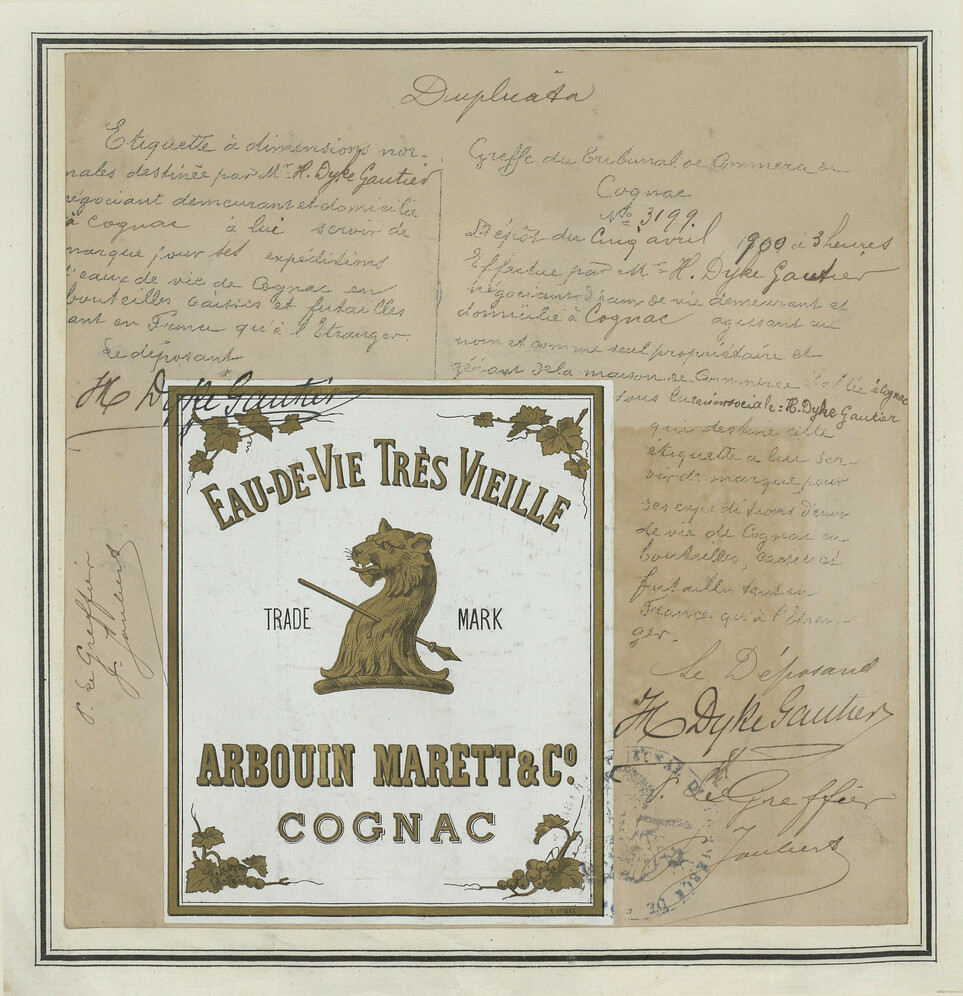 Duplicata
Etiquette à dimensions nor-
males destinée par Mr. H. Dyke Gautier
négociant demeurant et domicilié
à Cognac à lui servir de
marque pour ses expéditions
d'eaux de vie de Cognac en
bouteilles caisses et futailles
tant en France qu'à l'Etranger.
Le déposant
H Dyke Gautier
P. Le Greffier
J. Joubert
Greffe du Tribunal de Commerce de
Cognac
No. 3199.
Dépôt du Cinq avril 1900 à 3 heures
Effectué par Mr. H. Dyke Gautier
négociant d'eaux de vie demeurant et
domicilié à Cognac agissant au
nom et comme seul propriétaire et
gérant de la maison de Commerce établie à Cognac
sous la raison sociale: H. Dyke Gautier
qui destine cette
étiquette a lui ser-
vir de marque pour
ses expéditions d'eaux
de vie de Cognac en
bouteilles, caisses et
futailles tant en
France qu'à l'étran-
ger.
Le Déposant
H Dyke Gautier
P. Le Greffier
J. Joubert
EAU-DE-VIE TRÈS VIEILLE
TRADE MARK
ARBOUIN MARETT & Co.
COGNAC
DÉPOSÉ